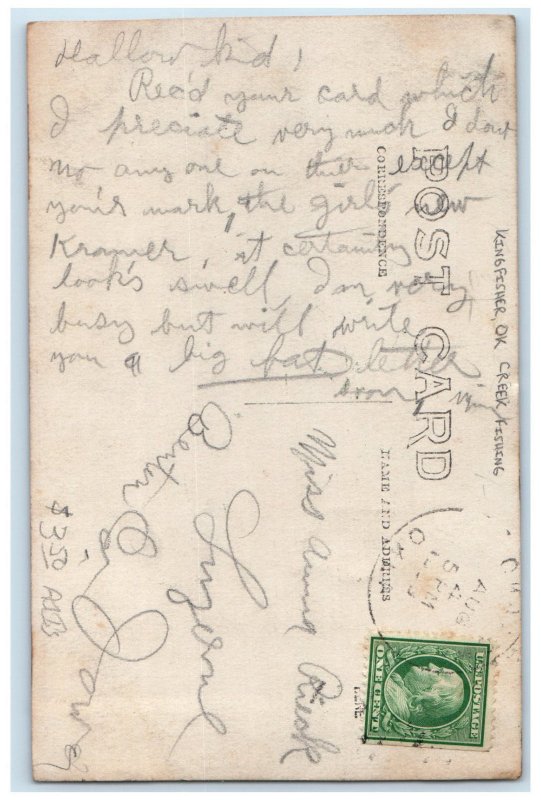 Hallow kid!
Rec'd your card which
I preciate very much I don't
no any one on their except
you'r mark, the girl new
Kramer, it certainly
look's swell, I'm very
busy but will write
you a big fat letter
soon,
POST CARD
CORRESPONDENCE
NAME AND ADDRESS
HERE
Miss Anna Rieck
Luzerne
Benton Co.
Iowa
KINGFISHER, OK CREEK FISHING
$3.50
AUG
U.S. POSTAGE
ONE CENT